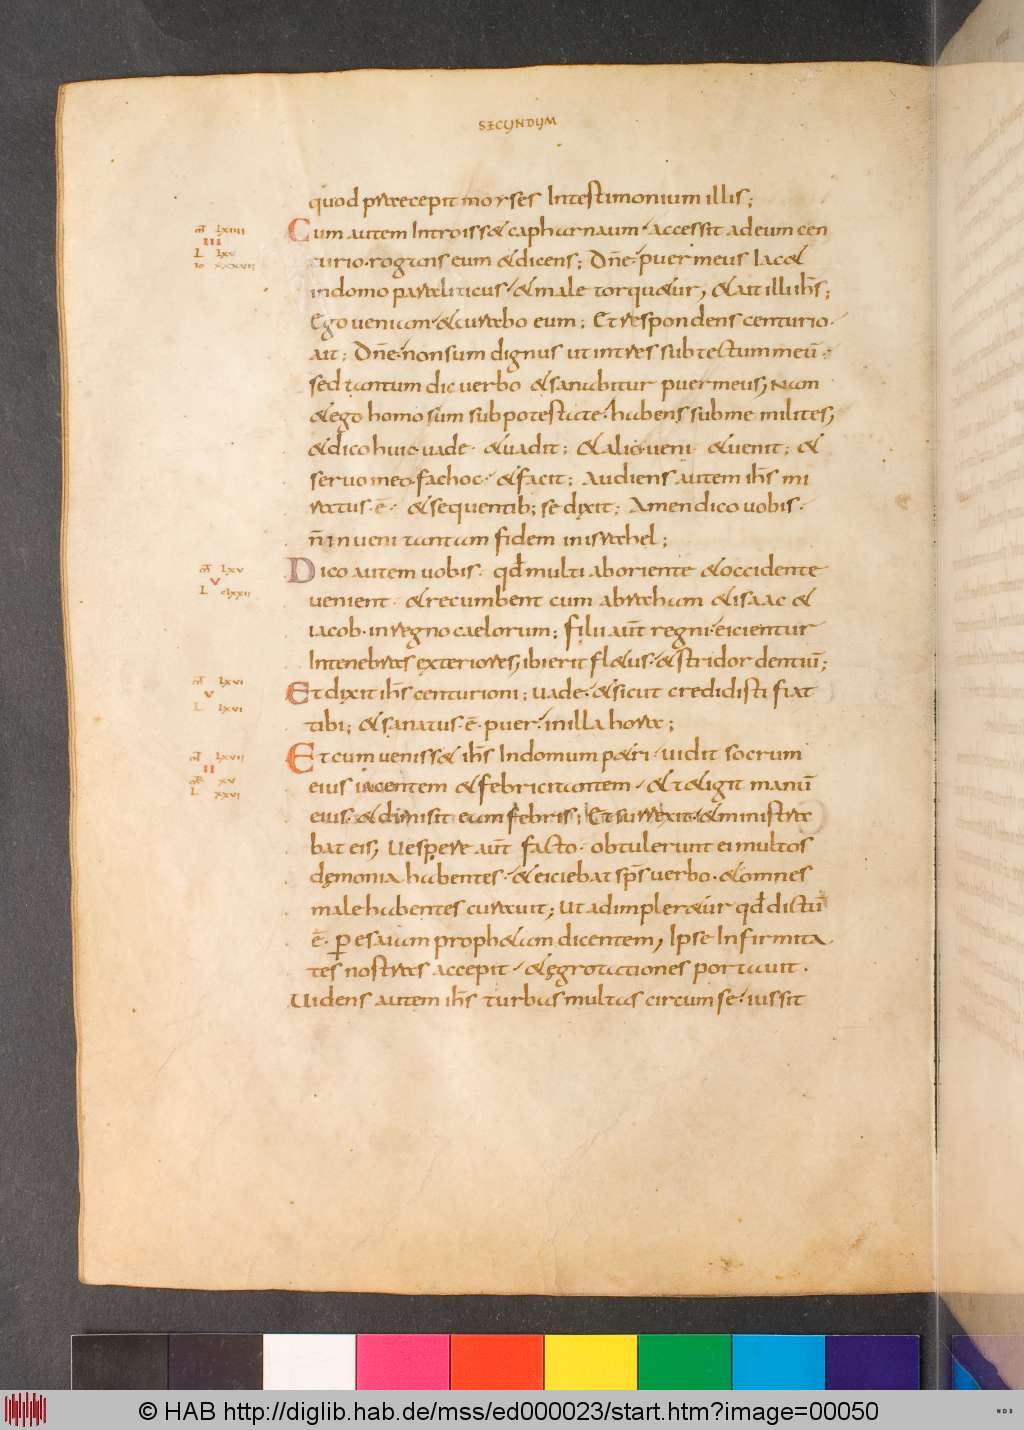 SECUNDUM
quod praecepit moyses Intestimonium illis;
Cum autem Introisset capharnaum· accessit adeum cen
turio· rogans eum &dicens; Dn̄e· puer meus Iac&
indomo paraliticus· &male torqu&ur, &ait illi ih̄s;
Ego veniam· &curabo eum; Et respondens centurio·
ait; Dn̄e· non sum dignus ut intres sub tectum meū·
sed tantum dic verbo &sanabitur puer meus; Nam
&ego homo sum sub potestate· habens subme milites;
&dico huic· uade· &uadit; &alio· veni· &uenit; &
servo meo· fac hoc· &facit; Audiens autem ih̄s mi
ratus· ē· &sequentib; se dixit; Amen dico vobis·
n̄ inveni tantam fidem in israhel;
m̄ lxiiii
III
L lxv
Io xxxvii
Dico autem uobis· qđ multi ab oriente &occidente
venient· &recumbent cum abraham &isaac &
iacob· in regno caelorum; filii aūt regni· eicientur
Intenebras exteriores, ibi erit fl&us· &stridor dentiū;
m̄ lxv
V
L clxxii
Et dixit ih̄s centurioni; uade· &sicut credidisti fiat
tibi; &sanatus· ē· puer· in illa hora;
m̄ lxvi
V
L lxvi
Et cum veniss& ih̄s Indomum p&ri· vidit socrum
eius iacentem &febricitantem· &t&igit manū
eius· &dimisit eam febris; Et surrexit· &ministra
bat eis; Uespere aūt facto· obtulerunt ei multos
dęmonia habentes· &eiciebat sp̄s verbo· &omnes
male habentes curavit; Ut adimpler&ur qđ dictū
ē· ꝑ esaiam proph&am dicentem, Ipse Infirmita
tes nostras accepit· &ęgrotationes portavit·
Uidens autem ih̄s turbas multas circum se· iussit
m̄ lxvii
II
mr̄ xv
L xxvi
© HAB http://diglib.hab.de/mss/ed000023/start.htm?image=00050